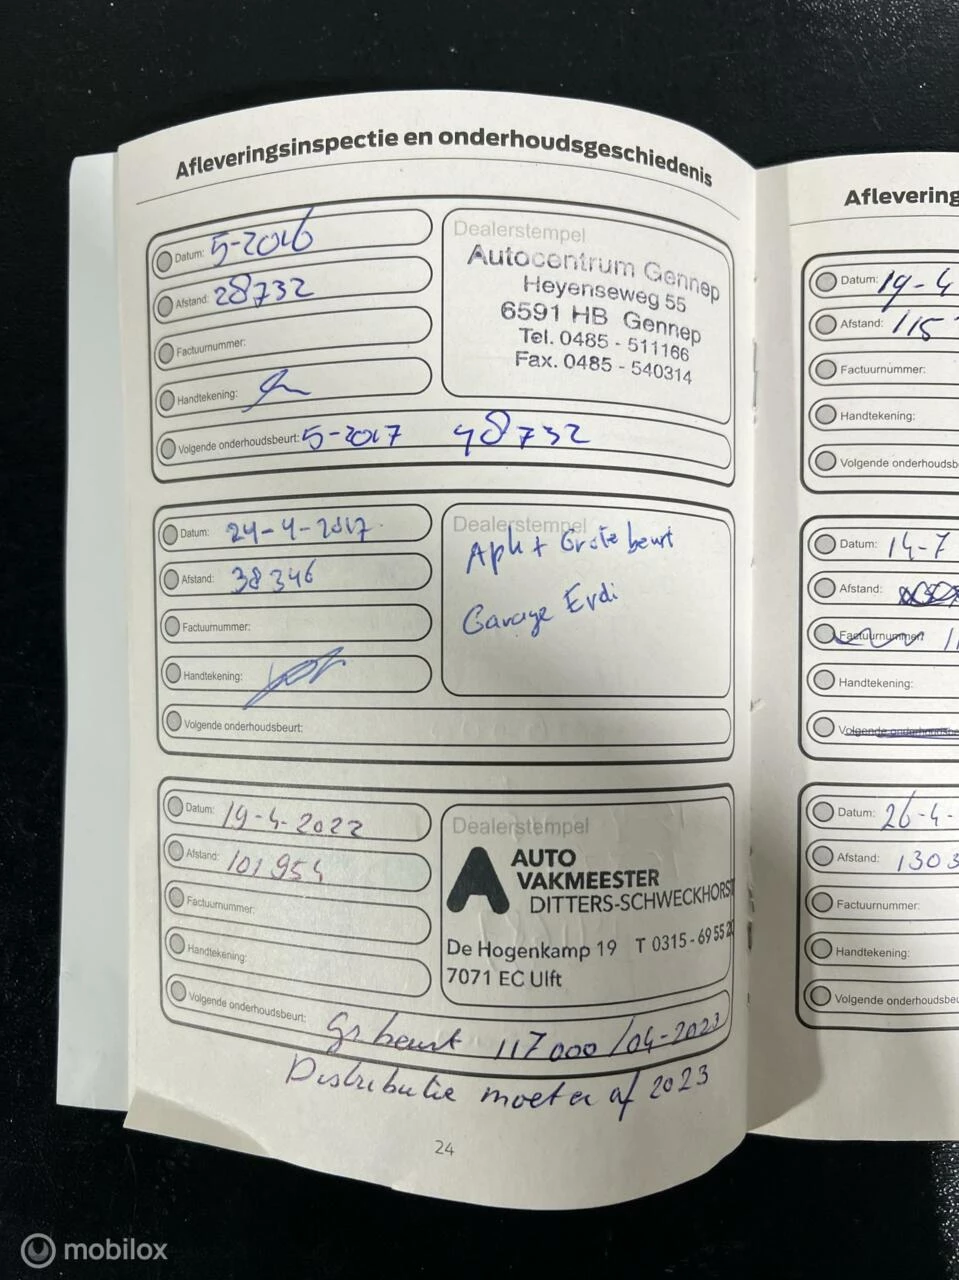 Afleveringsinspectie en onderhoudsgeschiedenis
Datum: 5-2016
Afstand: 28732
Factuurnummer:
Handtekening:
Volgende onderhoudsbeurt: 5-2017 48732
Dealerstempel
Autocentrum Gennep
Heyenseweg 55
6591 HB Gennep
Tel. 0485 - 511166
Fax. 0485 - 540314
Datum: 24-4-2017
Afstand: 38346
Factuurnummer:
Handtekening:
Volgende onderhoudsbeurt:
Dealerstempel
Apk + Grote beurt
Garage Evdi
Datum: 19-4-2022
Afstand: 101954
Factuurnummer:
Handtekening:
Volgende onderhoudsbeurt: Gr beurt 117000 /04-2023
Dealerstempel
AUTO
VAKMEESTER
DITTERS-SCHWECKHORST
De Hogenkamp 19 T 0315-69 55 20
7071 EC Ulft
Distributie moet er af 2023
24
Aflevering
Datum: 19-4
Afstand: 115
Factuurnummer:
Handtekening:
Volgende onderhoudsb
Datum: 14-7
Afstand:
Factuurnummer: 11
Handtekening:
Volgende onderhoudsbe
Datum: 26-4-
Afstand: 1303
Factuurnummer:
Handtekening:
Volgende onderhoudsbeu
mobilox